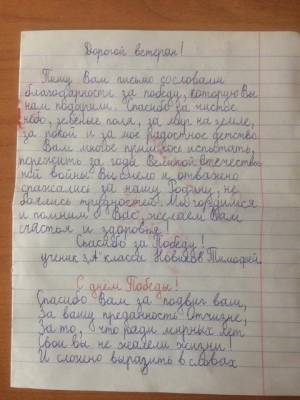 Дорогой ветеран!
Пишу Вам письмо со словами
благодарности за победу, которую Вы
нам подарили. Спасибо за чистое
небо, зелёные поля, за мир на земле,
за покой и за мое радостное детство.
Вам многое пришлось испытать,
пережить за года Великой Отечествен-
ной войны. Вы смело и отважно
сражались за нашу Родину, не
боялись трудностей. Мы гордимся
и помним о Вас, желаем Вам
счастья и здоровья!
Спасибо за Победу!
ученик 3"А" класса Новиков Тимофей
С днем Победы!
Спасибо Вам за подвиг ваш,
За вашу преданность Отчизне,
За то, что ради мирных лет
Свои вы не жалели жизни!
И сложно выразить в словах